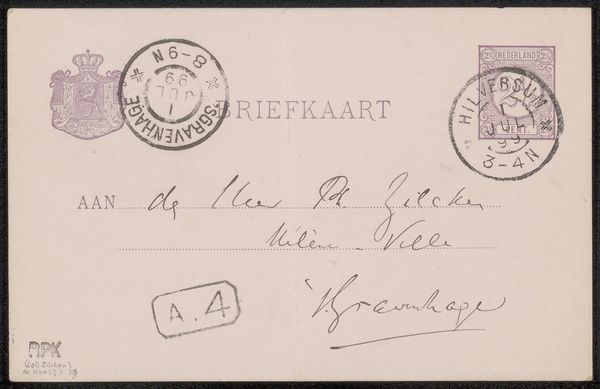 NEDERLAND
2½ 2½
CENT.
HILVERSUM
1
JUL
99
3-4N
'SGRAVENHAGE
8-9N
1
JUL
99
BRIEFKAART
AAN de Heer Ph. Zilcken
Hélène-Villa
's Gravenhage
A.4
RPK
(coll. Zilcken)